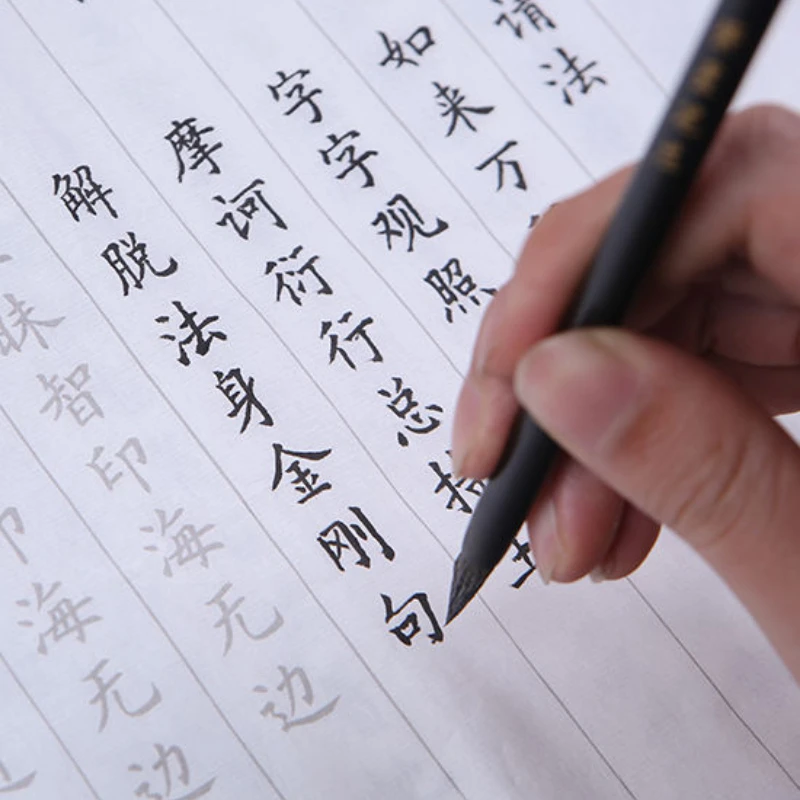 请法
如来万
字字观照
摩诃衍行总持
解脱法身金刚句
昧智印海无边
印海无边